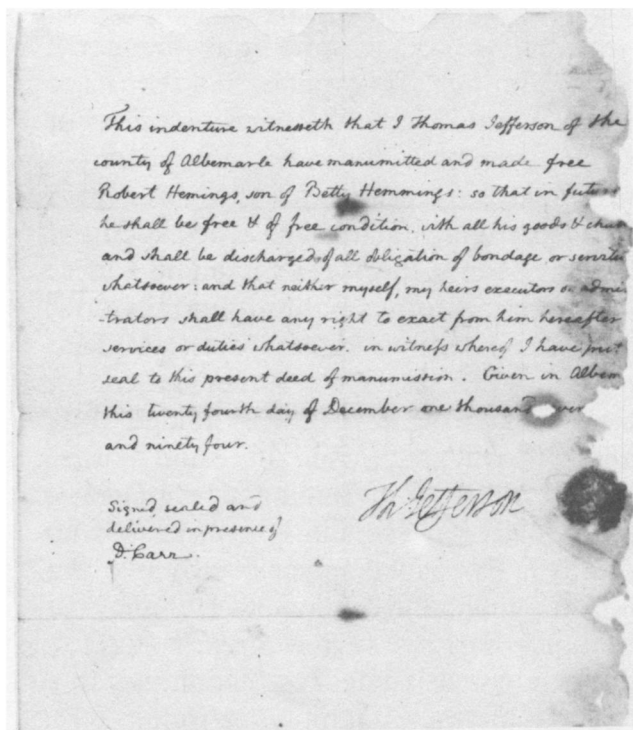 This indenture witnesseth that I Thomas Jefferson of the
county of Albemarle have manumitted and made free
Robert Hemings, son of Betty Hemmings: so that in future
he shall be free & of free condition, with all his goods &
and shall be discharged of all obligation of bondage or
whatsoever: and that neither myself, my heirs executors or admini
-trators shall have any right to exact from him hereafter
services or duties whatsoever. in witness whereof I have put
seal to this present deed of manumission. Given in Albem
this twenty fourth day of December one thousand
and ninety four.
Signed, sealed and
delivered in presence of
D. Carr.
Th Jefferson